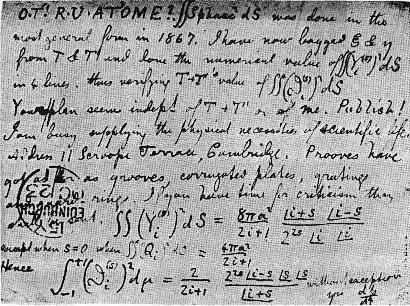 O.T! R.U. AT 'OME? ∬Spharc² dS was done in the
most general form in 1867. I have now bagged ξ & η
from T & T' and done the numerical value of ∬(Y_i^(s))² dS
in 4 lines. thus verifying T + T's value of ∬(ϑ_i^(s))² dS
Your plan seems indept of T + T' or of me. Publish!
I am busy supplying the physical necessities of scientific life
address 11 Scroope Terrace, Cambridge. Prooves have
got as as grooves, corrugated plates, grating
rings. If you have time for criticism then
∬(Y_i^(s))² dS = 8πa²/2i+1 |i+s |i-s / 2^2s |i |i
except when s=0 when ∬(Q_i)² dS = 4πa²/2i+1
Hence ∫_-1^+1 (ϑ_i^(s))² dμ = 2/2i+1 2^2s |i-s |s |s / |i+s without exception
EDINBURGH
yrs dp/dt